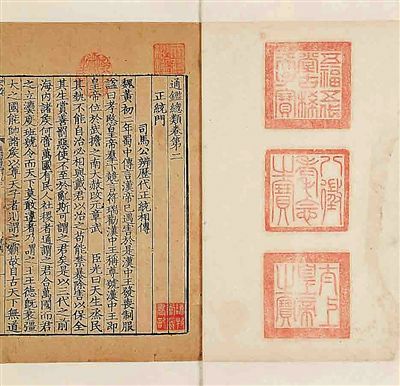 五福五代堂古稀天子寶
八徵耄念之寶
太上皇帝之寶
通鑑總類卷第二
正統門
司馬公辨歷代正統相傳
魏黃初二年蜀中傳言漢帝已遇害於是漢中王發喪制服
諡曰孝愍皇帝羣下競言符瑞勸漢中王稱尊號漢中王即
皇帝位於武擔之南大赦改章武 臣光曰天生烝民
其勢不能自治必相與戴君以治之苟能禁暴除害以保全
其生賞善罰惡使不至於亂斯可謂之君矣是以三代之前
海內諸侯何啻萬國有民人社稷者通謂之君合萬國而君
之立法度班號令而天下莫敢違者乃謂之王王德既衰彊
大之國能帥諸侯以尊天子者則謂之霸故自古天下無道